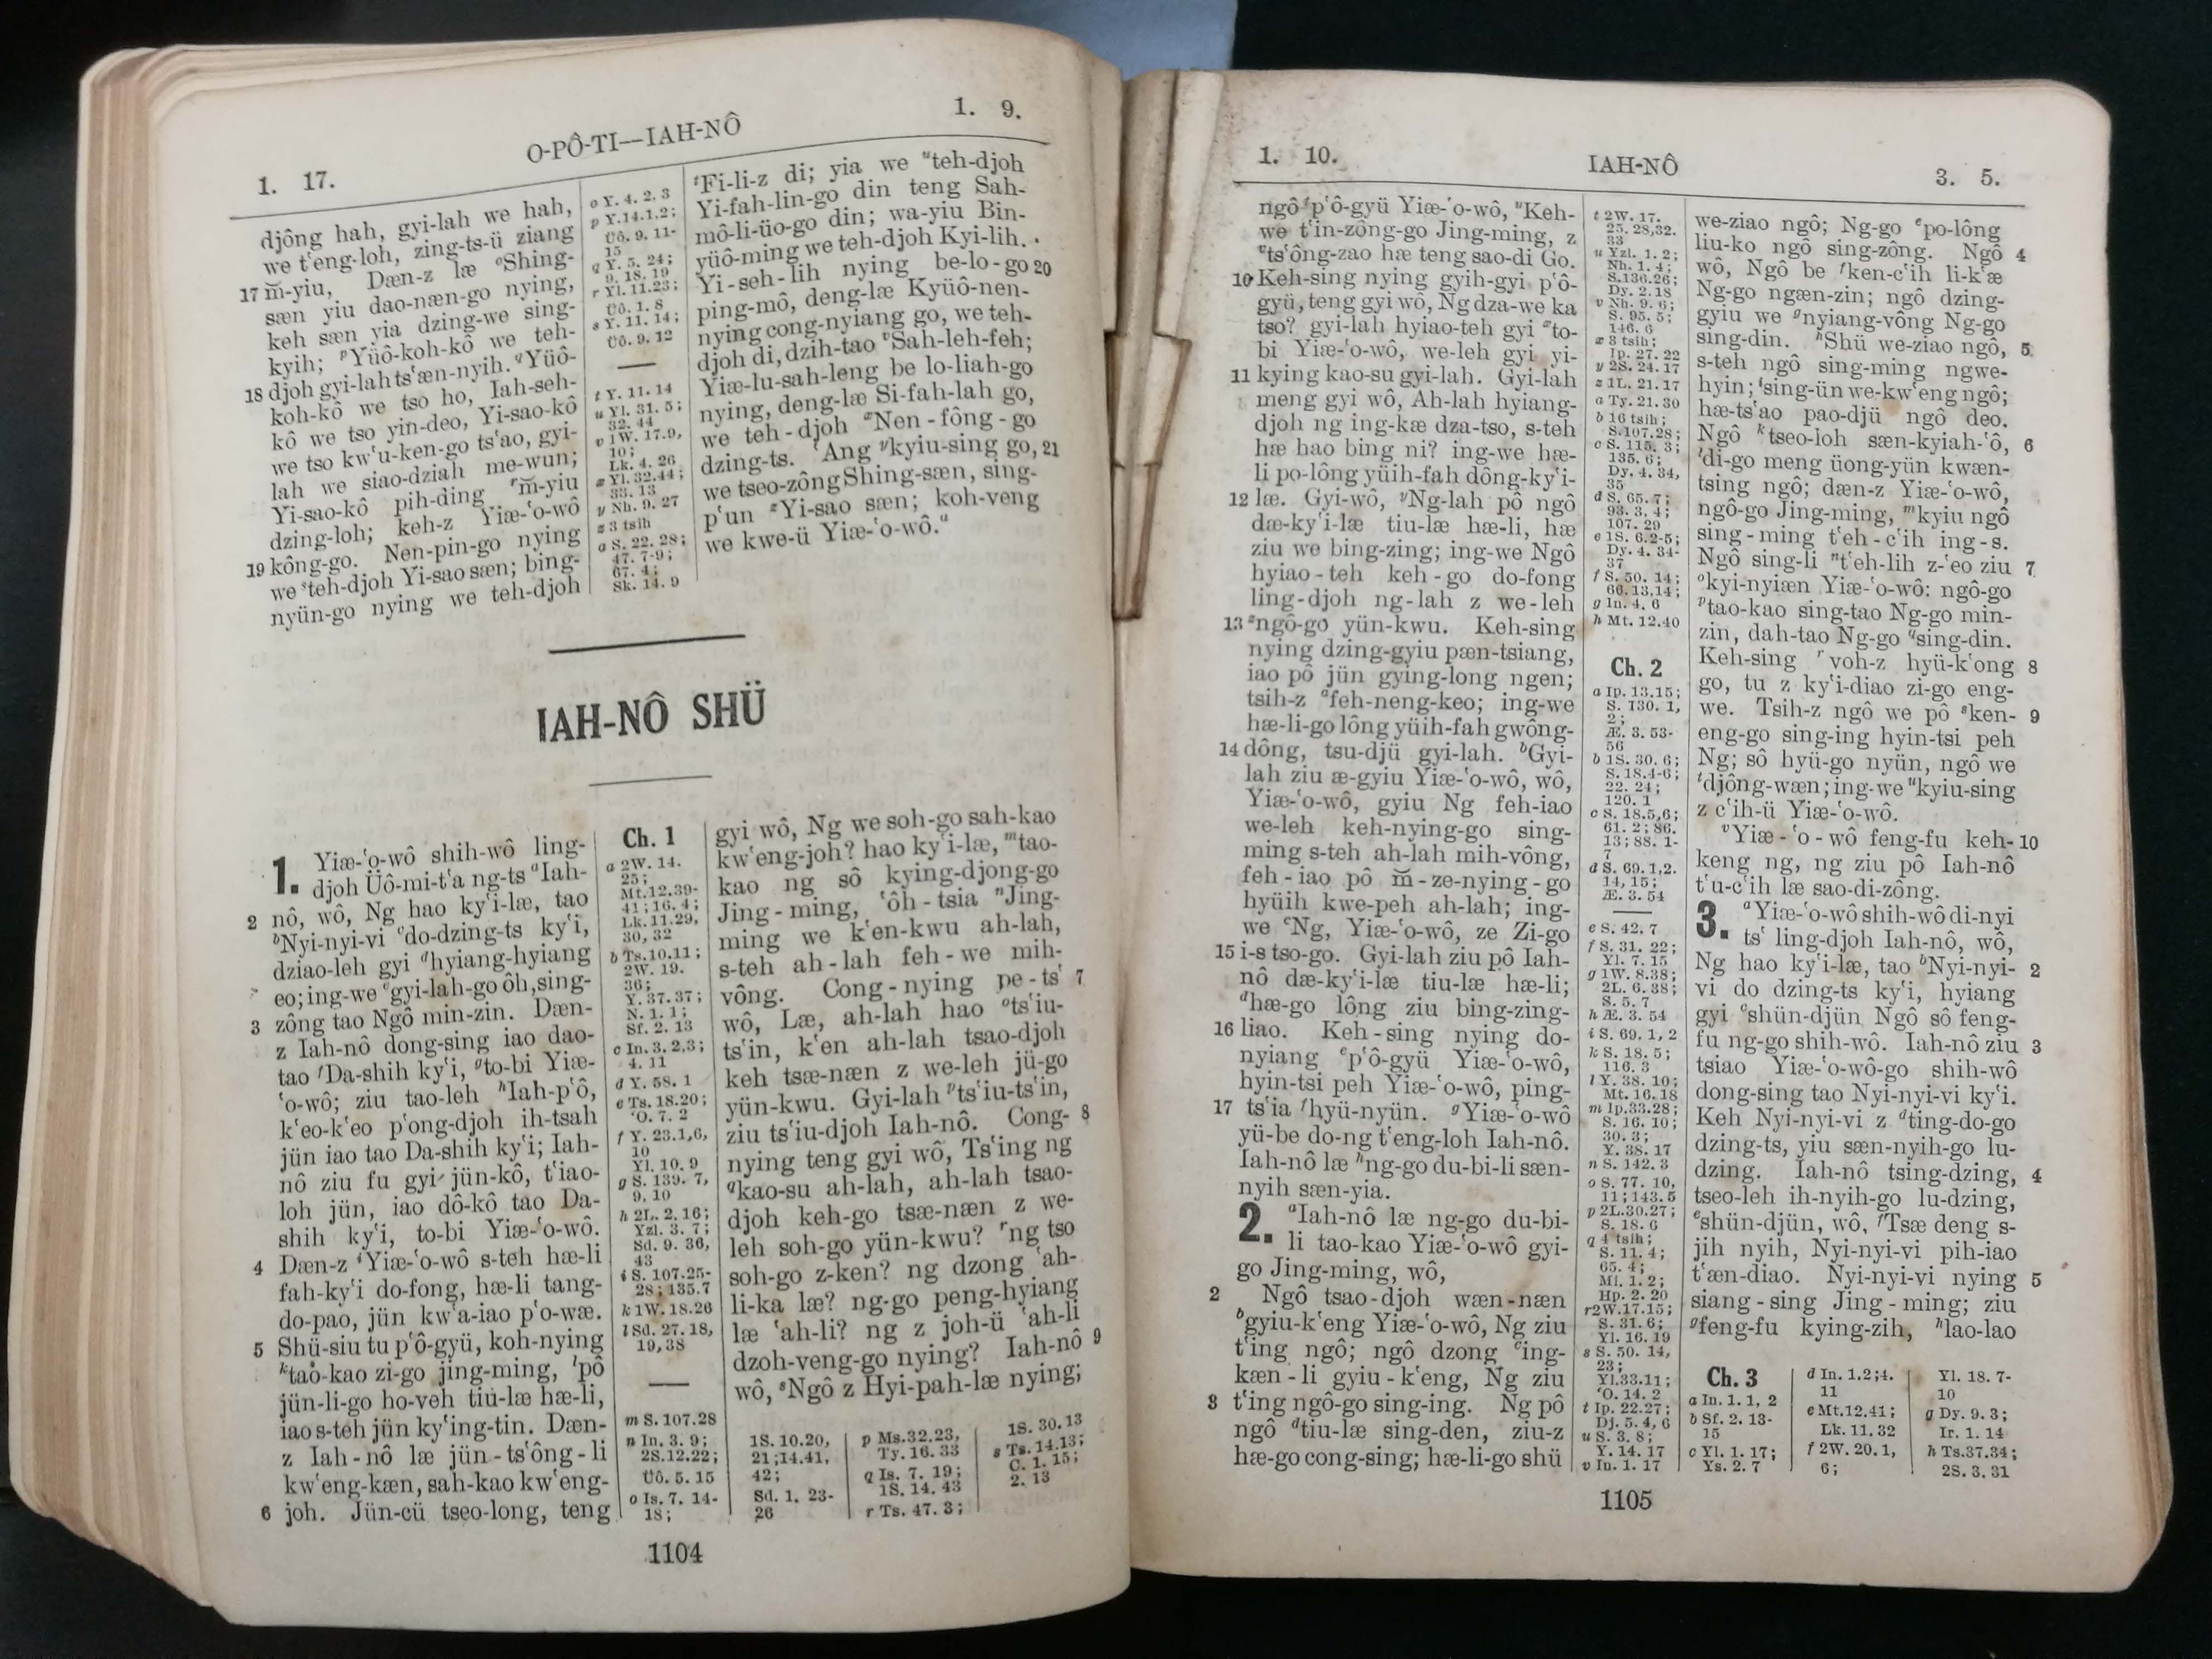 1. 17.
O-PÔ-TI—IAH-NÔ
1. 9.
djông hah, gyi-lah we hah,
we t‘eng-loh, zing-ts-ü ziang
17 m̆-yiu, Dæn-z læ oShing-
sæn yiu dao-næn-go nying,
keh sæn yia dzing-we sing-
kyih; pYüô-koh-kô we teh-
18 djoh gyi-lah ts‘æn-nyih. qYüô-
koh-kô we tso ho, Iah-seh-
kô we tso yin-deo, Yi-sao-kô
we tso kw‘u-ken-go ts‘ao, gyi-
lah we siao-dziah me-wun;
Yi-sao-kô pih-ding rm̆-yiu
dzing-loh; keh-z Yiæ-‘o-wô
19 kông-go. Nen-pin-go nying
we steh-djoh Yi-sao sæn; bing-
nyün-go nying we teh-djoh
o Y. 4. 2, 3
p Y.14.1.2;
Üô. 9. 11-
15
q Y. 5. 24;
9. 18. 19
r Yl. 11.23;
Üô. 1. 8
s Y. 11. 14;
Üô. 9. 12
t Y. 11. 14
u Yl. 31. 5;
32. 44
v 1W. 17.9,
10;
Lk. 4. 26
x Yl. 32.44;
33. 13
y Nh. 9. 27
z 3 tsih
a S. 22. 28;
47. 7-9;
67. 4;
Sk. 14. 9
tFi-li-z di; yia we uteh-djoh
Yi-fah-lin-go din teng Sah-
mô-li-üo-go din; wa-yiu Bin-
yüô-ming we teh-djoh Kyi-lih.
Yi-seh-lih nying be-lo-go 20
ping-mô, deng-læ Kyüô-nen-
nying cong-nyiang go, we teh-
djoh di, dzih-tao vSah-leh-feh;
Yiæ-lu-sah-leng be lo-liah-go
nying, deng-læ Si-fah-lah go,
we teh-djoh xNen-fông-go
dzing-ts. ‘Ang ykyiu-sing go, 21
we tseo-zông Shing-sæn, sing-
p‘un zYi-sao sæn; koh-veng
we kwe-ü Yiæ-‘o-wô.a
IAH-NÔ SHÜ
1. Yiæ-‘o-wô shih-wô ling-
djoh Üô-mi-t‘a ng-ts aIah-
2 nô, wô, Ng hao ky‘i-læ, tao
bNyi-nyi-vi cdo-dzing-ts ky‘i,
dziao-leh gyi dhyiang-hyiang
eo; ing-we egyi-lah-go ôh, sing-
3 zông tao Ngô min-zin. Dæn-
z Iah-nô dong-sing iao dao-
tao fDa-shih ky‘i, gto-bi Yiæ-
‘o-wô; ziu tao-leh hIah-p‘ô,
k‘eo-k‘eo p‘ong-djoh ih-tsah
jün iao tao Da-shih ky‘i; Iah-
nô ziu fu gyi jün-kô, t‘iao-
loh jün, iao dô-kô tao Da-
shih ky‘i, to-bi Yiæ-‘o-wô.
4 Dæn-z iYiæ-‘o-wô s-teh hæ-li
fah-ky‘i do-fong, hæ-li tang-
do-pao, jün kw‘a-iao p‘o-wæ.
5 Shü-siu tu p‘ô-gyü, koh-nying
ktao-kao zi-go jing-ming, lpô
jün-li-go ho-veh tiu-læ hæ-li,
iao s-teh jün ky‘ing-tin. Dæn-
z Iah-nô læ jün-ts‘ông-li
kw‘eng-kæn, sah-kao kw‘eng-
6 joh. Jün-cü tseo-long, teng
Ch. 1
a 2W. 14.
25;
Mt.12.39-
41;16. 4;
Lk.11.29,
30, 32
b Ts.10.11;
2W. 19.
36;
Y. 37. 37;
N. 1. 1;
Sf. 2. 13
c In. 3. 2,3;
4. 11
d Y. 58. 1
e Ts. 18.20;
‘O. 7. 2
f Y. 23.1,6,
10
Yl. 10. 9
g S. 139. 7,
9, 10
h 2L. 2. 16;
Yzl. 3. 7;
Sd. 9. 36,
43
i S. 107.25-
28; 135.7
k 1W. 18.26
l Sd. 27. 18,
19,38
m S. 107.28
n In. 3. 9;
2S.12.22;
Üô. 5. 15
o Is. 7. 14-
18;
gyi wô, Ng we soh-go sah-kao
kw‘eng-joh? hao ky‘i-læ, mtao-
kao ng sô kying-djong-go
Jing-ming, ‘ôh-tsia nJing-
ming we k‘en-kwu ah-lah,
s-teh ah-lah feh-we mih-
vông. Cong-nying pe-ts‘ 7
wô, Læ, ah-lah hao ots‘iu-
ts‘in, k‘en ah-lah tsao-djoh
keh tsæ-næn z we-leh jü-go
yün-kwu. Gyi-lah pts‘iu-ts‘in,
ziu ts‘iu-djoh Iah-nô. Cong- 8
nying teng gyi wô, Ts‘ing ng
qkao-su ah-lah, ah-lah tsao-
djoh keh-go tsæ-næn z we-
leh soh-go yün-kwu? rng tso
soh-go z-ken? ng dzong ‘ah-
li-ka læ? ng-go peng-hyiang
læ ‘ah-li? ng z joh-ü ‘ah-li
dzoh-veng-go nying? Iah-nô 9
wô, sNgô z Hyi-pah-læ nying;
1S. 10.20,
21;14.41,
42;
Sd. 1. 23-
26
p Ms.32.23,
Ty. 16. 33
q Is. 7. 19;
1S. 14. 43
r Ts. 47. 3;
1S. 30.13
s Ts. 14.13;
C. 1. 15;
2. 13
1104
1. 10.
IAH-NÔ
3. 5.
ngô tp‘ô-gyü Yiæ-‘o-wô, uKeh-
we t‘in-zông-go Jing-ming, z
vts‘ông-zao hæ teng sao-di Go.
10 Keh-sing nying gyih-gyi p‘ô-
gyü, teng gyi wô, Ng dza-we ka
tso? gyi-lah hyiao-teh gyi xto-
bi Yiæ-‘o-wô, we-leh gyi yi-
11 kying kao-su gyi-lah. Gyi-lah
meng gyi wô, Ah-lah hyiang-
djoh ng ing-kæ dza-tso, s-teh
hæ hao bing ni? ing-we hæ-
li po-lông yüih-fah dông-ky‘i-
12 læ. Gyi-wô, yNg-lah pô ngô
dæ-ky‘i-læ tiu-læ hæ-li, hæ
ziu we bing-zing; ing-we Ngô
hyiao-teh keh-go do-fong
ling-djoh ng-lah z we-leh
13 zngô-go yün-kwu. Keh-sing
nying dzing-gyiu pæn-tsiang,
iao pô jün gying-long ngen;
tsih-z afeh-neng-keo; ing-we
hæ-li-go lông yüih-fah gwông-
14 dông, tsu-djü gyi-lah. bGyi-
lah ziu æ-gyiu Yiæ-‘o-wô, wô,
Yiæ-‘o-wô, gyiu Ng feh-iao
we-leh keh-nying-go sing-
ming s-teh ah-lah mih-vông,
feh-iao pô m̆-ze-nying-go
hyüih kwe-peh ah-lah; ing-
we cNg, Yiæ-‘o-wô, ze Zi-go
15 i-s tso-go. Gyi-lah ziu pô Iah-
nô dæ-ky‘i-læ tiu-læ hæ-li;
dhæ-go lông ziu bing-zing-
16 liao. Keh-sing nying do-
nyiang ep‘ô-gyü Yiæ-‘o-wô,
hyin-tsi peh Yiæ-‘o-wô, ping-
17 ts‘ia fhyü-nyün. gYiæ-‘o-wô
yü-be do-ng t‘eng-loh Iah-nô.
Iah-nô læ hng-go du-bi-li sæn-
nyih sæn-yia.
2. aIah-nô læ ng-go du-bi-
li tao-kao Yiæ-‘o-wô gyi-
go Jing-ming, wô,
2 Ngô tsao-djoh wæn-næn
bgyiu-k‘eng Yiæ-‘o-wô, Ng ziu
t‘ing ngô; ngô dzong cing-
kæn-li gyiu-k‘eng, Ng ziu
3 t‘ing ngô-go sing-ing. Ng pô
ngô dtiu-læ sing-den, ziu-z
hæ-go cong-sing; hæ-li-go shü
t 2W. 17.
25. 28,32.
33
u Yzl. 1. 2;
Nh. 1. 4;
S.136.26;
Dy. 2.18
v Nh. 9. 6;
S. 95. 5;
146. 6
x 3 tsih;
Ip. 27. 22
y 2S. 24. 17
z 1L. 21. 17
a Ty. 21. 30
b 16 tsih;
S.107.28;
c S. 115. 3;
135. 6;
Dy. 4. 34,
35
d S. 65. 7;
93. 3, 4;
107. 29
e 1S. 6.2-5;
Dy. 4. 34-
37
f S. 50. 14;
66.13,14;
g In. 4. 6
h Mt. 12.40
Ch. 2
a Ip. 13.15;
S. 130. 1,
2;
Æ. 3. 53-
56
b 1S. 30. 6;
S. 18.4-6;
22. 24;
120. 1
c S. 18.5,6;
61. 2; 86.
13; 88. 1-
7
d S. 69. 1,2.
14, 15;
Æ. 3. 54
e S. 42. 7
f S. 31. 22;
Yl. 7. 15
g 1W. 8.38;
2L. 6. 38;
S. 5. 7
h Æ. 3. 54
i S. 69. 1, 2
k S. 18. 5;
116. 3
l Y. 38. 10;
Mt. 16. 18
m Ip.33.28;
S. 16. 10;
30. 3;
Y. 38. 17
n S. 142. 3
o S. 77. 10,
11; 143. 5
p 2L.30.27;
S. 18. 6
q 4 tsih;
S. 11. 4;
65. 4;
Mi. 1. 2;
Hp. 2. 20
r2W.17.15;
S. 31. 6;
Yl. 16. 19
s S. 50. 14,
23;
Yl.33.11;
‘O. 14. 2
t Ip. 22.27;
Dj. 5. 4, 6
u S. 3. 8;
Y. 14. 17
v In. 1. 17
we-ziao ngô; Ng-go epo-lông
liu-ko ngô sing-zông. Ngô 4
wô, Ngô be fken-c‘ih li-k‘æ
Ng-go ngæn-zin; ngô dzing-
gyiu we gnyiang-vông Ng-go
sing-din. hShü we-ziao ngô, 5
s-teh ngô sing-ming ngwe-
hyin; ising-ün we-kw‘eng ngô;
hæ-ts‘ao pao-djü ngô deo.
Ngô ktseo-loh sæn-kyiah-‘ô, 6
ldi-go meng üong-yün kwæn-
tsing ngô; dæn-z Yiæ-‘o-wô,
ngô-go Jing-ming, mkyiu ngô
sing-ming t‘eh-c‘ih ing-s.
Ngô sing-li nt‘eh-lih z-‘eo ziu 7
okyi-nyiæn Yiæ-‘o-wô: ngô-go
ptao-kao sing-tao Ng-go min-
zin, dah-tao Ng-go qsing-din.
Keh-sing rvoh-z hyü-k‘ong 8
go, tu z ky‘i-diao zi-go eng-
we. Tsih-z ngô we pô sken- 9
eng-go sing-ing hyin-tsi peh
Ng; sô hyü-go nyün, ngô we
tdjông-wæn; ing-we ukyiu-sing
z c‘ih-ü Yiæ-‘o-wô.
vYiæ-‘o-wô feng-fu keh- 10
keng ng, ng ziu pô Iah-nô
t‘u-c‘ih læ sao-di-zông.
3. aYiæ-‘o-wô shih-wô di-nyi
ts‘ ling-djoh Iah-nô, wô,
Ng hao ky‘i-læ, tao bNyi-nyi- 2
vi do dzing-ts ky‘i, hyiang
gyi cshün-djün Ngô sô feng-
fu ng-go shih-wô. Iah-nô ziu 3
tsiao Yiæ-‘o-wô-go shih-wô
dong-sing tao Nyi-nyi-vi ky‘i.
Keh Nyi-nyi-vi z dting-do-go
dzing-ts, yiu sæn-nyih-go lu-
dzing. Iah-nô tsing-dzing, 4
tseo-leh ih-nyih-go lu-dzing,
eshün-djün, wô, fTsæ deng s-
jih nyih, Nyi-nyi-vi pih-iao
t‘æn-diao. Nyi-nyi-vi nying 5
siang-sing Jing-ming; ziu
gfeng-fu kying-zih, hlao-lao
Ch. 3
a In. 1. 1, 2
b Sf. 2. 13-
15
c Yl. 1. 17;
Ys. 2. 7
d In. 1.2;4.
11
e Mt.12.41;
Lk. 11. 32
f 2W. 20. 1,
6;
Yl. 18. 7-
10
g Dy. 9. 3;
Ir. 1. 14
h Ts.37.34;
2S. 3. 31
1105